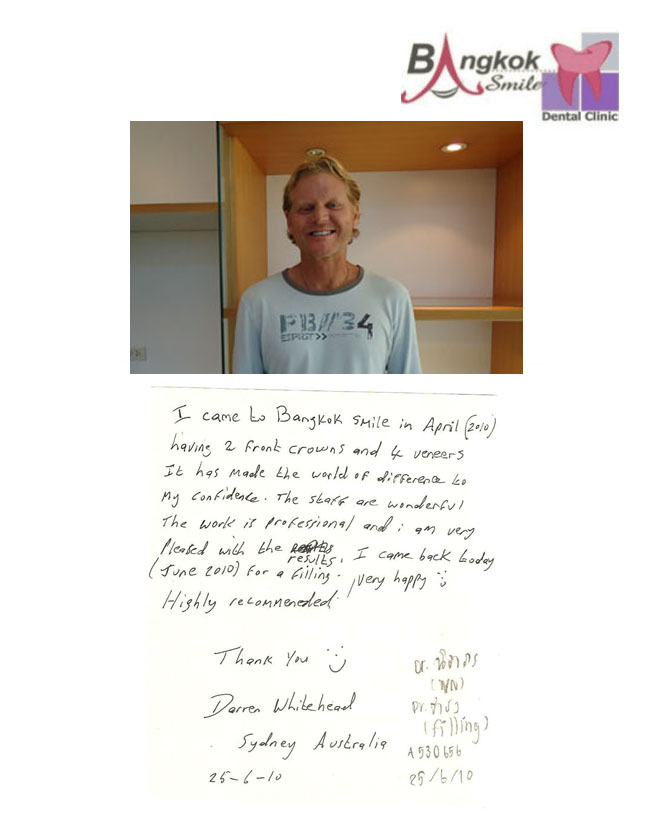 Bangkok
Smile
Dental Clinic
FB//34
ESPRIT >>
I came to Bangkok smile in April (2010)
having 2 front crowns and 4 veneers
It has made the world of difference to
my confidence. The staff are wonderful
The work is professional and i am very
pleased with the results. I came back today
(June 2010) for a filling. very happy
Highly recommeneded.
Thank You
Darren Whitehead
Sydney Australia
25-6-10
Dr.
Dr.
(filling)
A530656
25/6/10